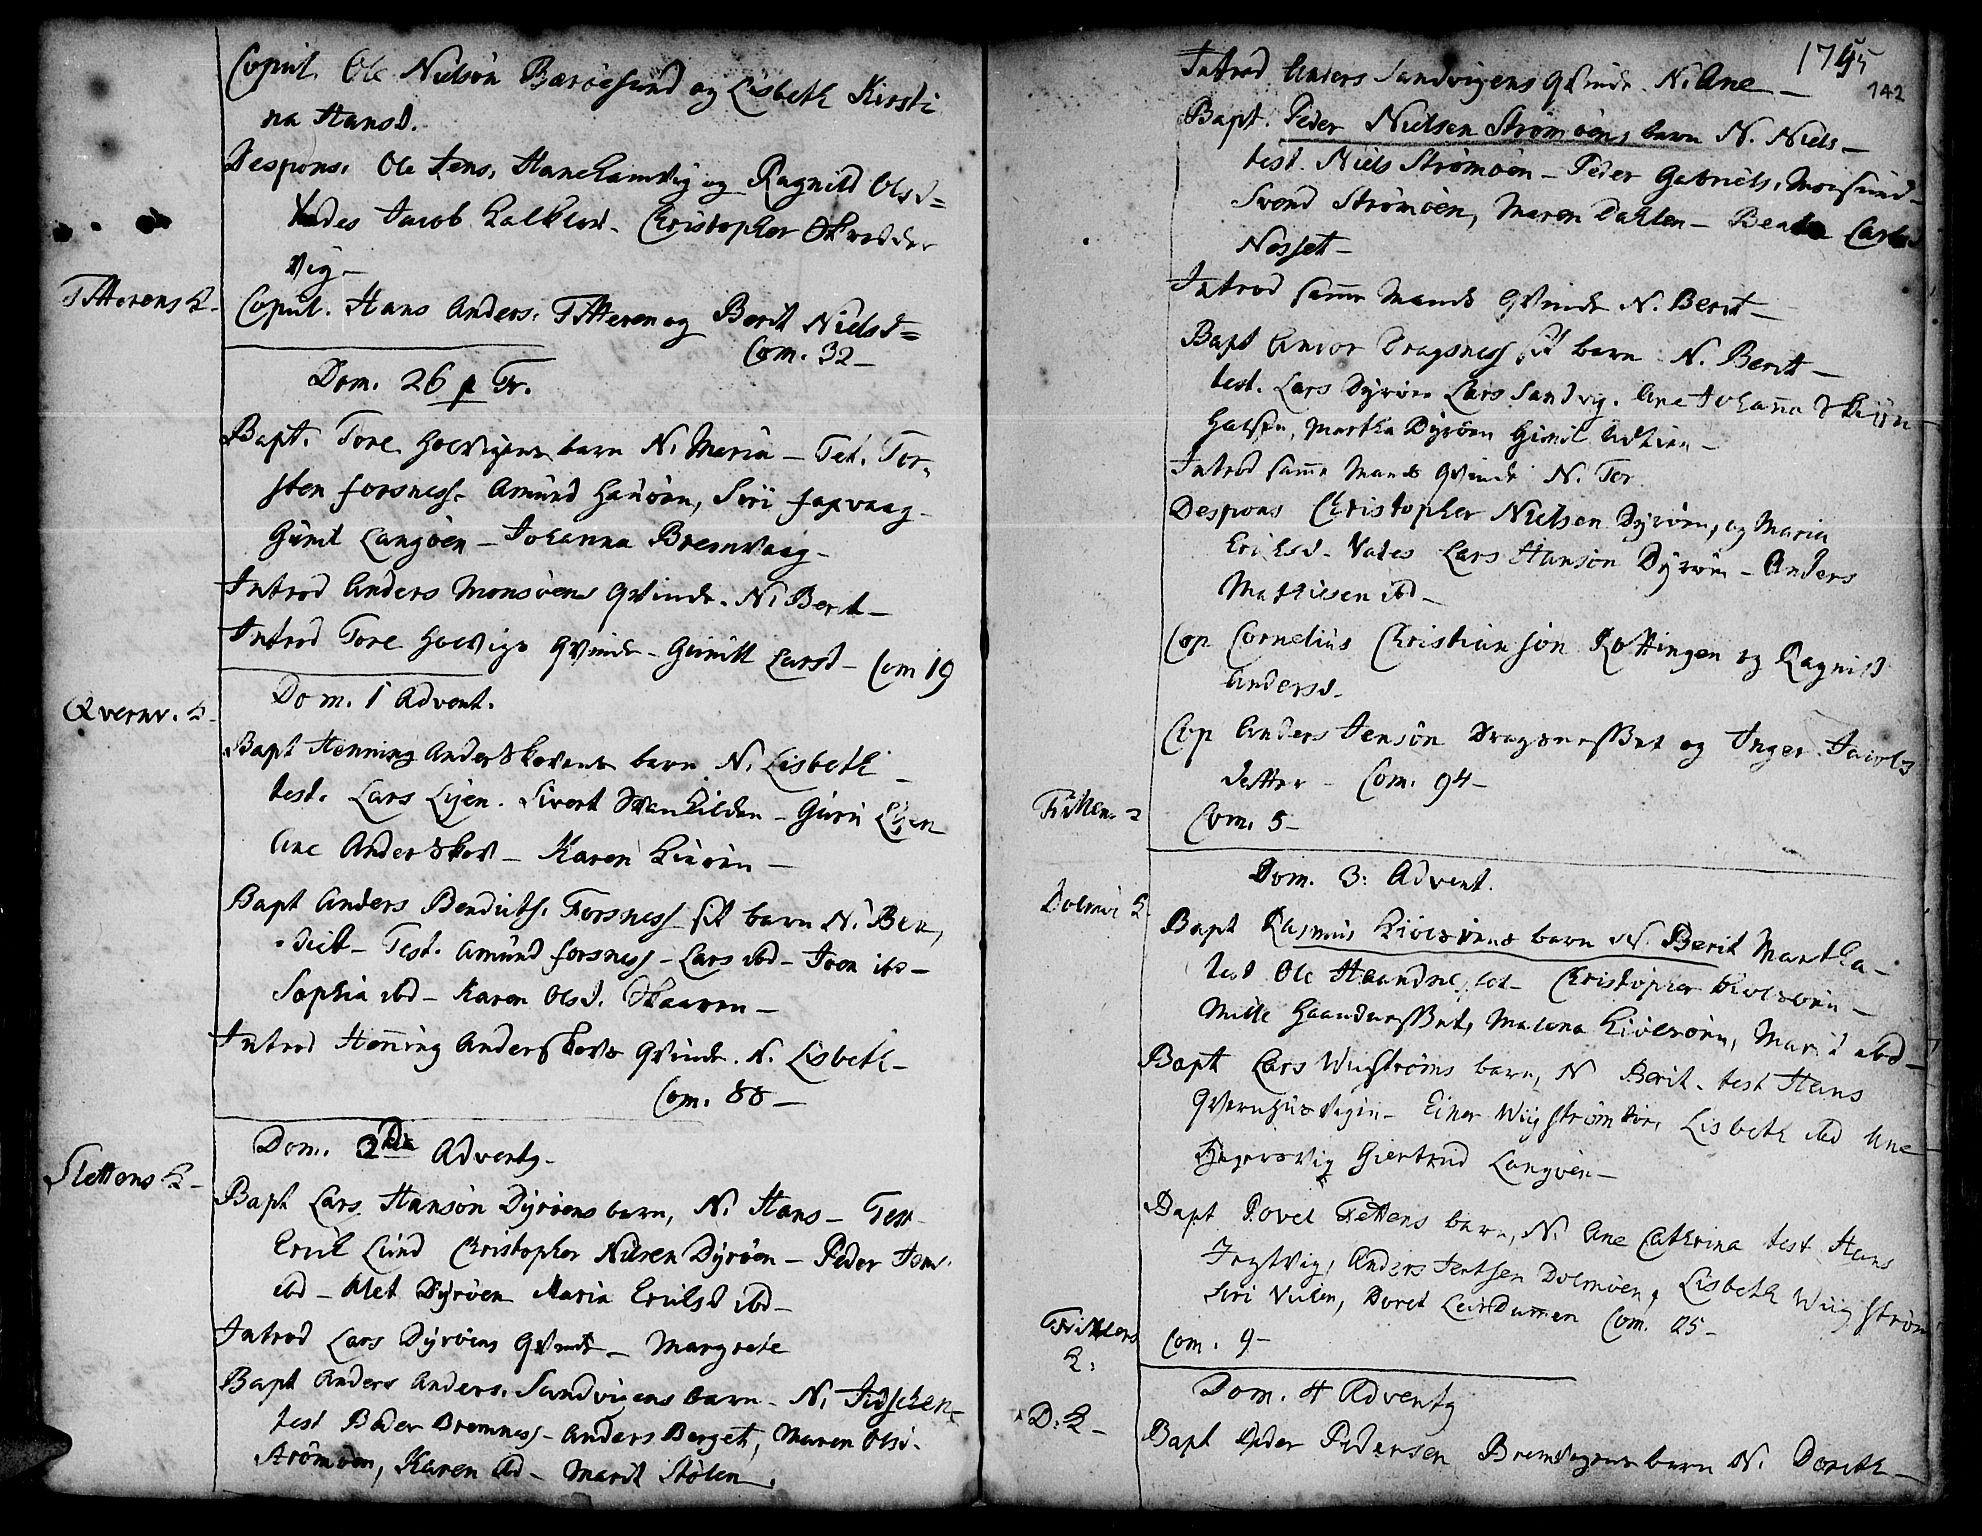 Copul. Ole Nielsön Bæröesund og Lisbeth Kirsti
na Hansd.
Despons. Ole Jens. Hanehamvig og Ragnild Olsd=
Vades Jacob Kalklov. Christopher Skredder
vig—
Titterens K. Copul. Hans Anders. Titteren og Berit Nielsd=
Com. 32—
Dom. 26 p Tr.
Bapt. Tore Holvigens barn N. Maria — Tet. Tor-
sten forsness. Amund Hauöen, Siri fagvaag
Gunil Langöen — Johanna Bremvaag—
Introd Anders Monsöens Qvinde. N. Berit—
Introd Tore Holvigs Qvinde — Gunild Larsd — Com 19
Qvernv. K. Dom. 1 Advent.
Bapt Henning Anderskovens barn N. Lisbeth —
test. Lars Lyen. Sivert Svanhilden — Guri Lyen
Ane Anderskov — Karen Kiuöen —
Bapt Anders Bendicts. Forsness sit barn N. Ben,
dict — Test. Amund forsness — Lars ibd — Iven ibd —
Sophia ibd — Karen Olsd. Skaaren —
Introd Henning Anderskovs Qvinde. N. Lisbeth—
Com. 88 —
Dom. 2de Adventy.
Slettens K — Bapt Lars Hansön Dyröens barn, N. Hans — Test
Erich Lund Christopher Nilsen Dyröen — Peder Jons.
ibd — Alet Dyröen Maria Erichsd ibd—
Introd Lars Dyröens Qvinde — Margrete
Bapt Anders Anders. Sandvigens barn — N.
test Peder Bremness — Anders Berget, Maren Olsd.
Strömöen, Karen ibd — Marit Stölen.
1795
142
Introd Anders Sandvigens Qvinde. N. Ane —
Bapt. Peder Nielsen Strömöens barn N. Niels —
test. Niels Strömöen — Peder Gabriels. Morsund—
Svend Strömöen, Maren Dahlen — Beata Carlsd
Nesset —
Introd samme Mands Qvinde N. Berit —
Bapt Anior Dragsness sit barn N. Berit —
test. Lars Dyröen Lars Sandvig. Ane Johanna
Halsen, Martha Dyröen Gunil
Introd samme Mands Qvinde N. Tor.
Despons Christopher Nielsen Dyröen, og Maria
Erichsd. Vades Lars Hansön Dyröen — Anders
Mathiesen ibd —
Cop Cornelius Christianson Rottingen og Ragnild
Andersd.
Cop Anders Jensön Dragsnesset og Inger Jacobs
datter — Com. 94 —
Com. 5 —
Dom. 3: Advent.
Dolmöe K. Bapt Rasmus Kiölsöens barn N. Berit Martha—
test Ole Haandnesset — Christopher Kiölsöen —
Mille Haandnesset, Malena Kiölsöen, Marit ibd —
Bapt Lars Wiigströms barn, N Berit. test Hans
Qvernhusvigen — Einer Wiigström ibd, Lisbeth ibd Ane
Giertrud Langöen —
Bapt Povel Fettens barn, N. Ane Cathrina test Hans
Anders Jentsen Dolmöen, Lisbeth Wiigström
Siri Vulen, Doret Com. 25 —
K: Com. 9 —
Dom. 4 Adventy
D. K — Bapt Peder Pedersen Bremvogens barn N. Doreth —